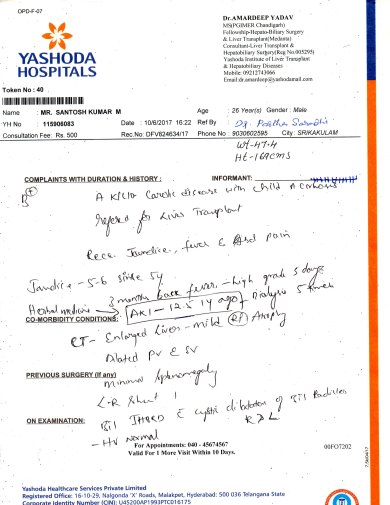 OPD-F-07
YASHODA
HOSPITALS
Dr.AMARDEEP YADAV
MS(PGIMER Chandigarh)
Fellowship-Hepato-Biliary Surgery
& Liver Transplant(Medanta)
Consultant-Liver Transplant &
Hepatobiliary Surgery(Reg No.005295)
Yashoda Institute of Liver Transplant
& Hepatobiliary Diseases
Mobile 09212743066
Email:dr.amardeep@yashodamail.com
Token No : 40
Name : MR. SANTOSH KUMAR M Age : 26 Year(s) Gender : Male
YH No : 115906083 Date : 10/6/2017 16:22 Ref By : Dr.
Consultation Fee: Rs. 500 Rec.No: DFV624634/17 Phone No : 9030602595 City : SRIKAKULAM
Wt-47.4
Ht-169cms
COMPLAINTS WITH DURATION & HISTORY : INFORMANT:
A K/C/O disease with child A
referred for Liver Transplant
Recc. Jaundice, fever & Abd pain
Jaundice - 5-6 since 5y
3 months back fever - high grade 5 days
Herbal medicine AKI - 12.5 1y ago Dialysis 5 times
CO-MORBIDITY CONDITIONS:
CT- Enlarged Liver - mild Rt Atrophy
Dilated PV & SV
PREVIOUS SURGERY (If any)
Minimal Splenomegaly
L-R Shunt
ON EXAMINATION: Bil IHBRD cystic dilatation of Bil Radicles
R>L
- HV normal
For Appointments: 040 - 45674567
Valid For 1 More Visit Within 10 Days.
00FO7202
Yashoda Healthcare Services Private Limited
Registered Office: 16-10-29, Nalgonda 'X' Roads, Malakpet, Hyderabad: 500 036 Telangana State
Corporate Identity Number (CIN): U45200AP1993PTC016175